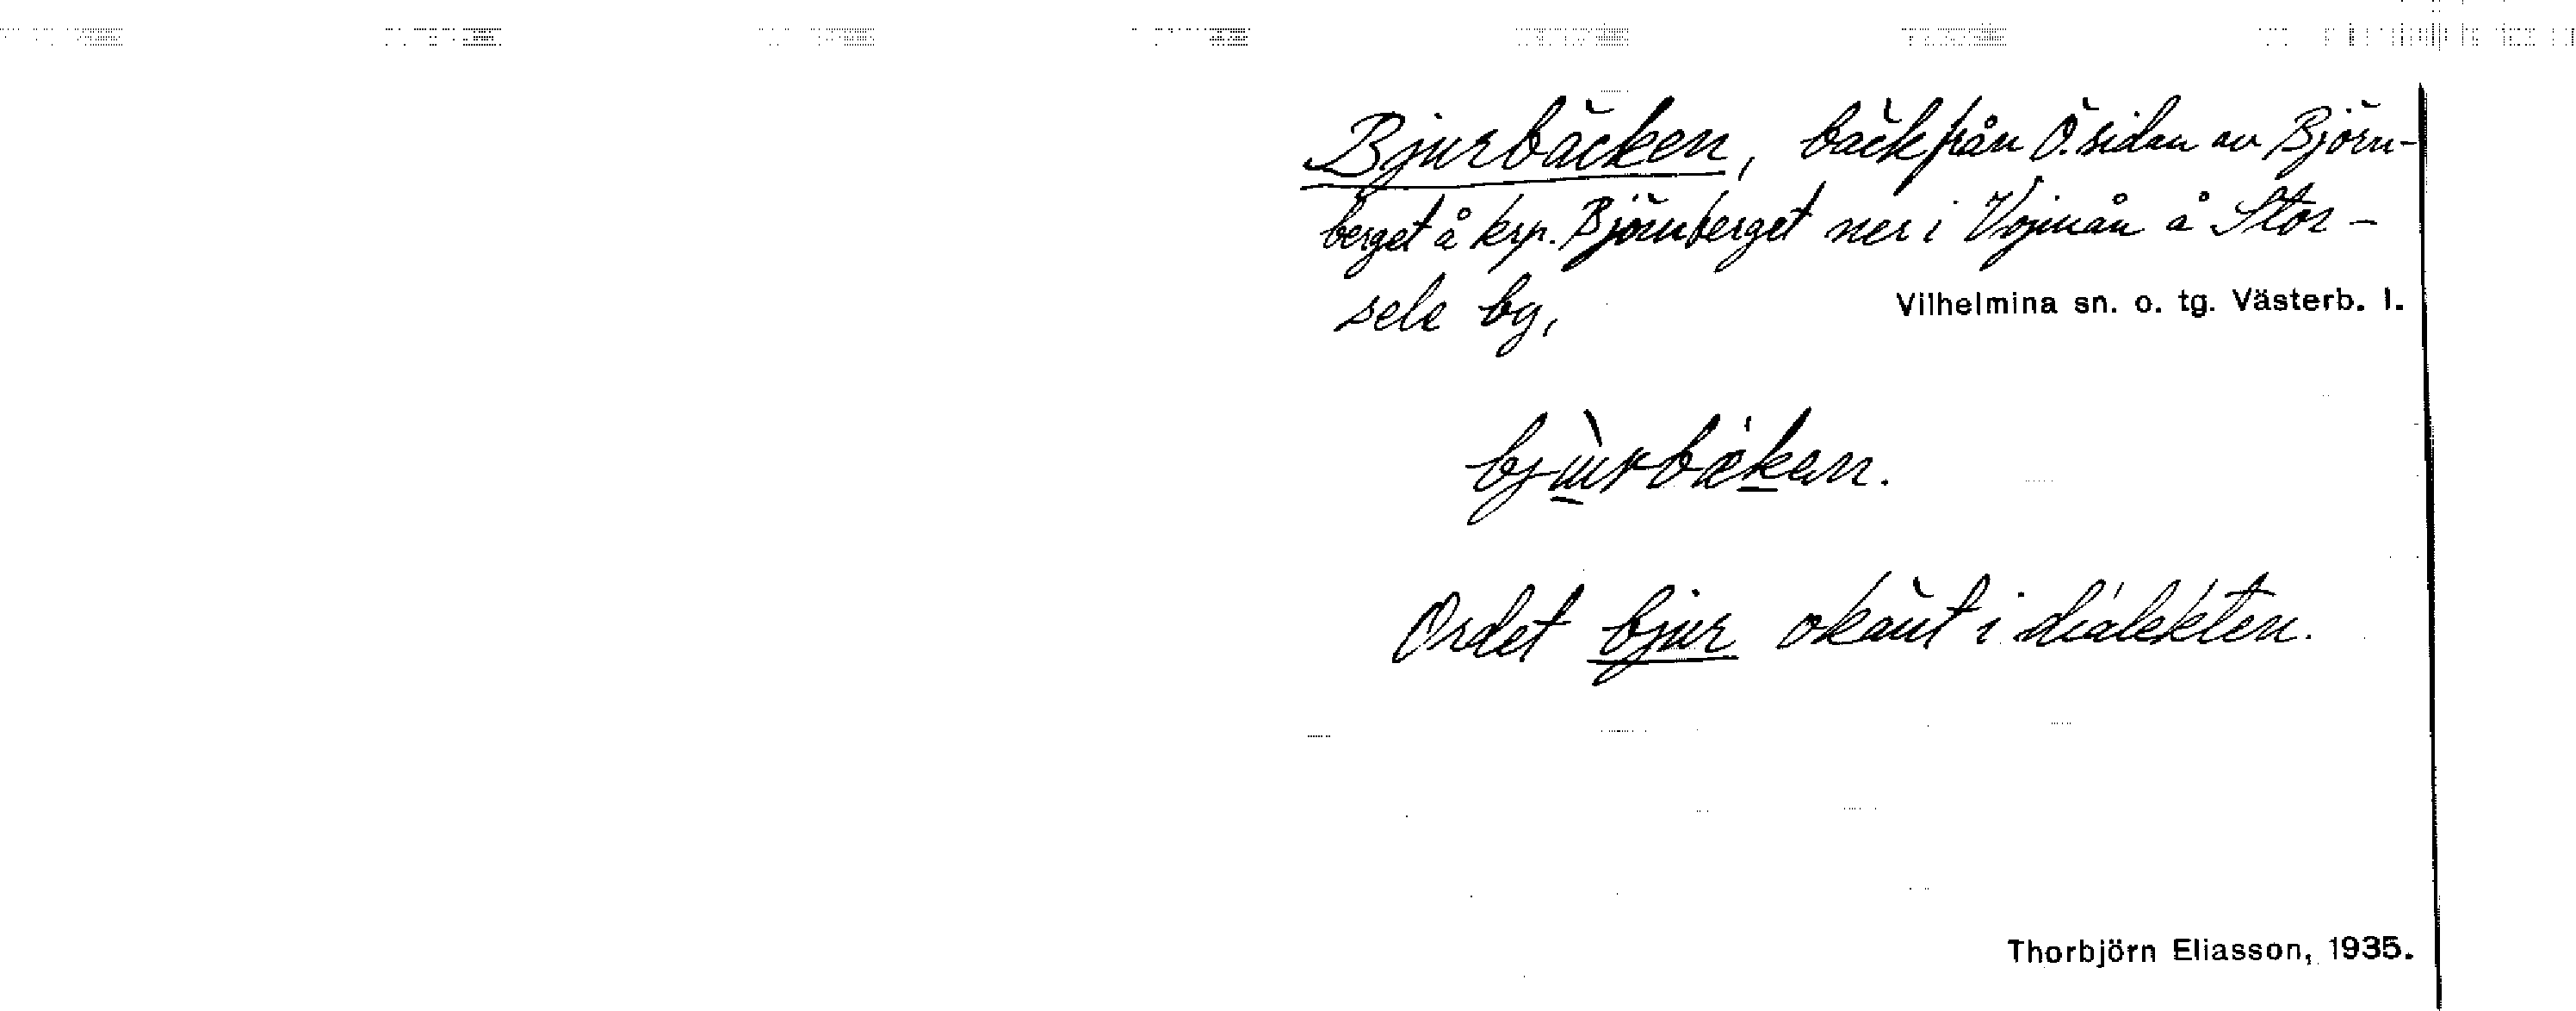 Bjurbäcken, bäck från Ö. sidan av Björn-
berget å krp. Björnberget ner i Vojmån å Stor-
sele by,
Vilhelmina sn. o. tg. Västerb. l.
bjùrbækan.
Ordet bjur okänt i dialekten.
Thorbjörn Eliasson, 1935.